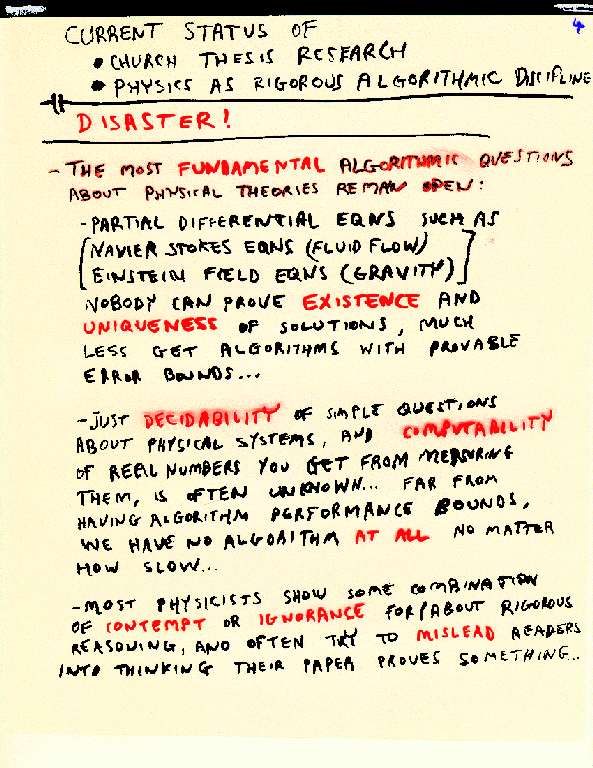 4
CURRENT STATUS OF
• CHURCH THESIS RESEARCH
• PHYSICS AS RIGOROUS ALGORITHMIC DISCIPLINE
DISASTER!
- THE MOST FUNDAMENTAL ALGORITHMIC QUESTIONS
ABOUT PHYSICAL THEORIES REMAIN OPEN:
- PARTIAL DIFFERENTIAL EQNS SUCH AS
[NAVIER STOKES EQNS (FLUID FLOW)
EINSTEIN FIELD EQNS (GRAVITY)]
NOBODY CAN PROVE EXISTENCE AND
UNIQUENESS OF SOLUTIONS, MUCH
LESS GET ALGORITHMS WITH PROVABLE
ERROR BOUNDS...
- JUST DECIDABILITY OF SIMPLE QUESTIONS
ABOUT PHYSICAL SYSTEMS, AND COMPUTABILITY
OF REAL NUMBERS YOU GET FROM MEASURING
THEM, IS OFTEN UNKNOWN... FAR FROM
HAVING ALGORITHM PERFORMANCE BOUNDS,
WE HAVE NO ALGORITHM AT ALL NO MATTER
HOW SLOW...
- MOST PHYSICISTS SHOW SOME COMBINATION
OF CONTEMPT OR IGNORANCE FOR/ABOUT RIGOROUS
REASONING, AND OFTEN TRY TO MISLEAD READERS
INTO THINKING THEIR PAPER PROVES SOMETHING..